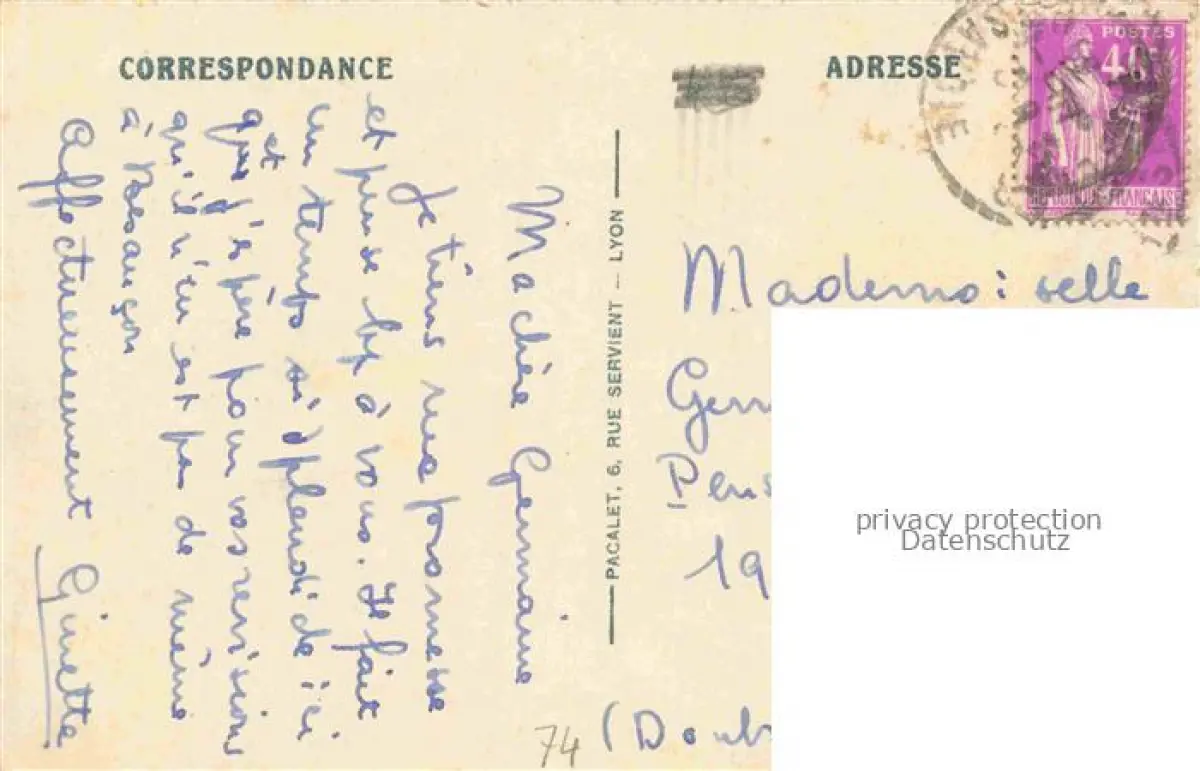 CORRESPONDANCE
Ma chère Germaine
Je tiens ma promesse
et pense bp à vous. Il fait
un temps si splendide ici
et
que j'espère pour vos revisions
qu'il n'en est pas de même
à Besançon
Affectueusement Ginette
PACALET, 6, RUE SERVIENT – LYON
ADRESSE
POSTES
40c
REPUBLIQUE FRANÇAISE
Mademoiselle
Germ
Pens
19
(Doub
74
privacy protection
Datenschutz